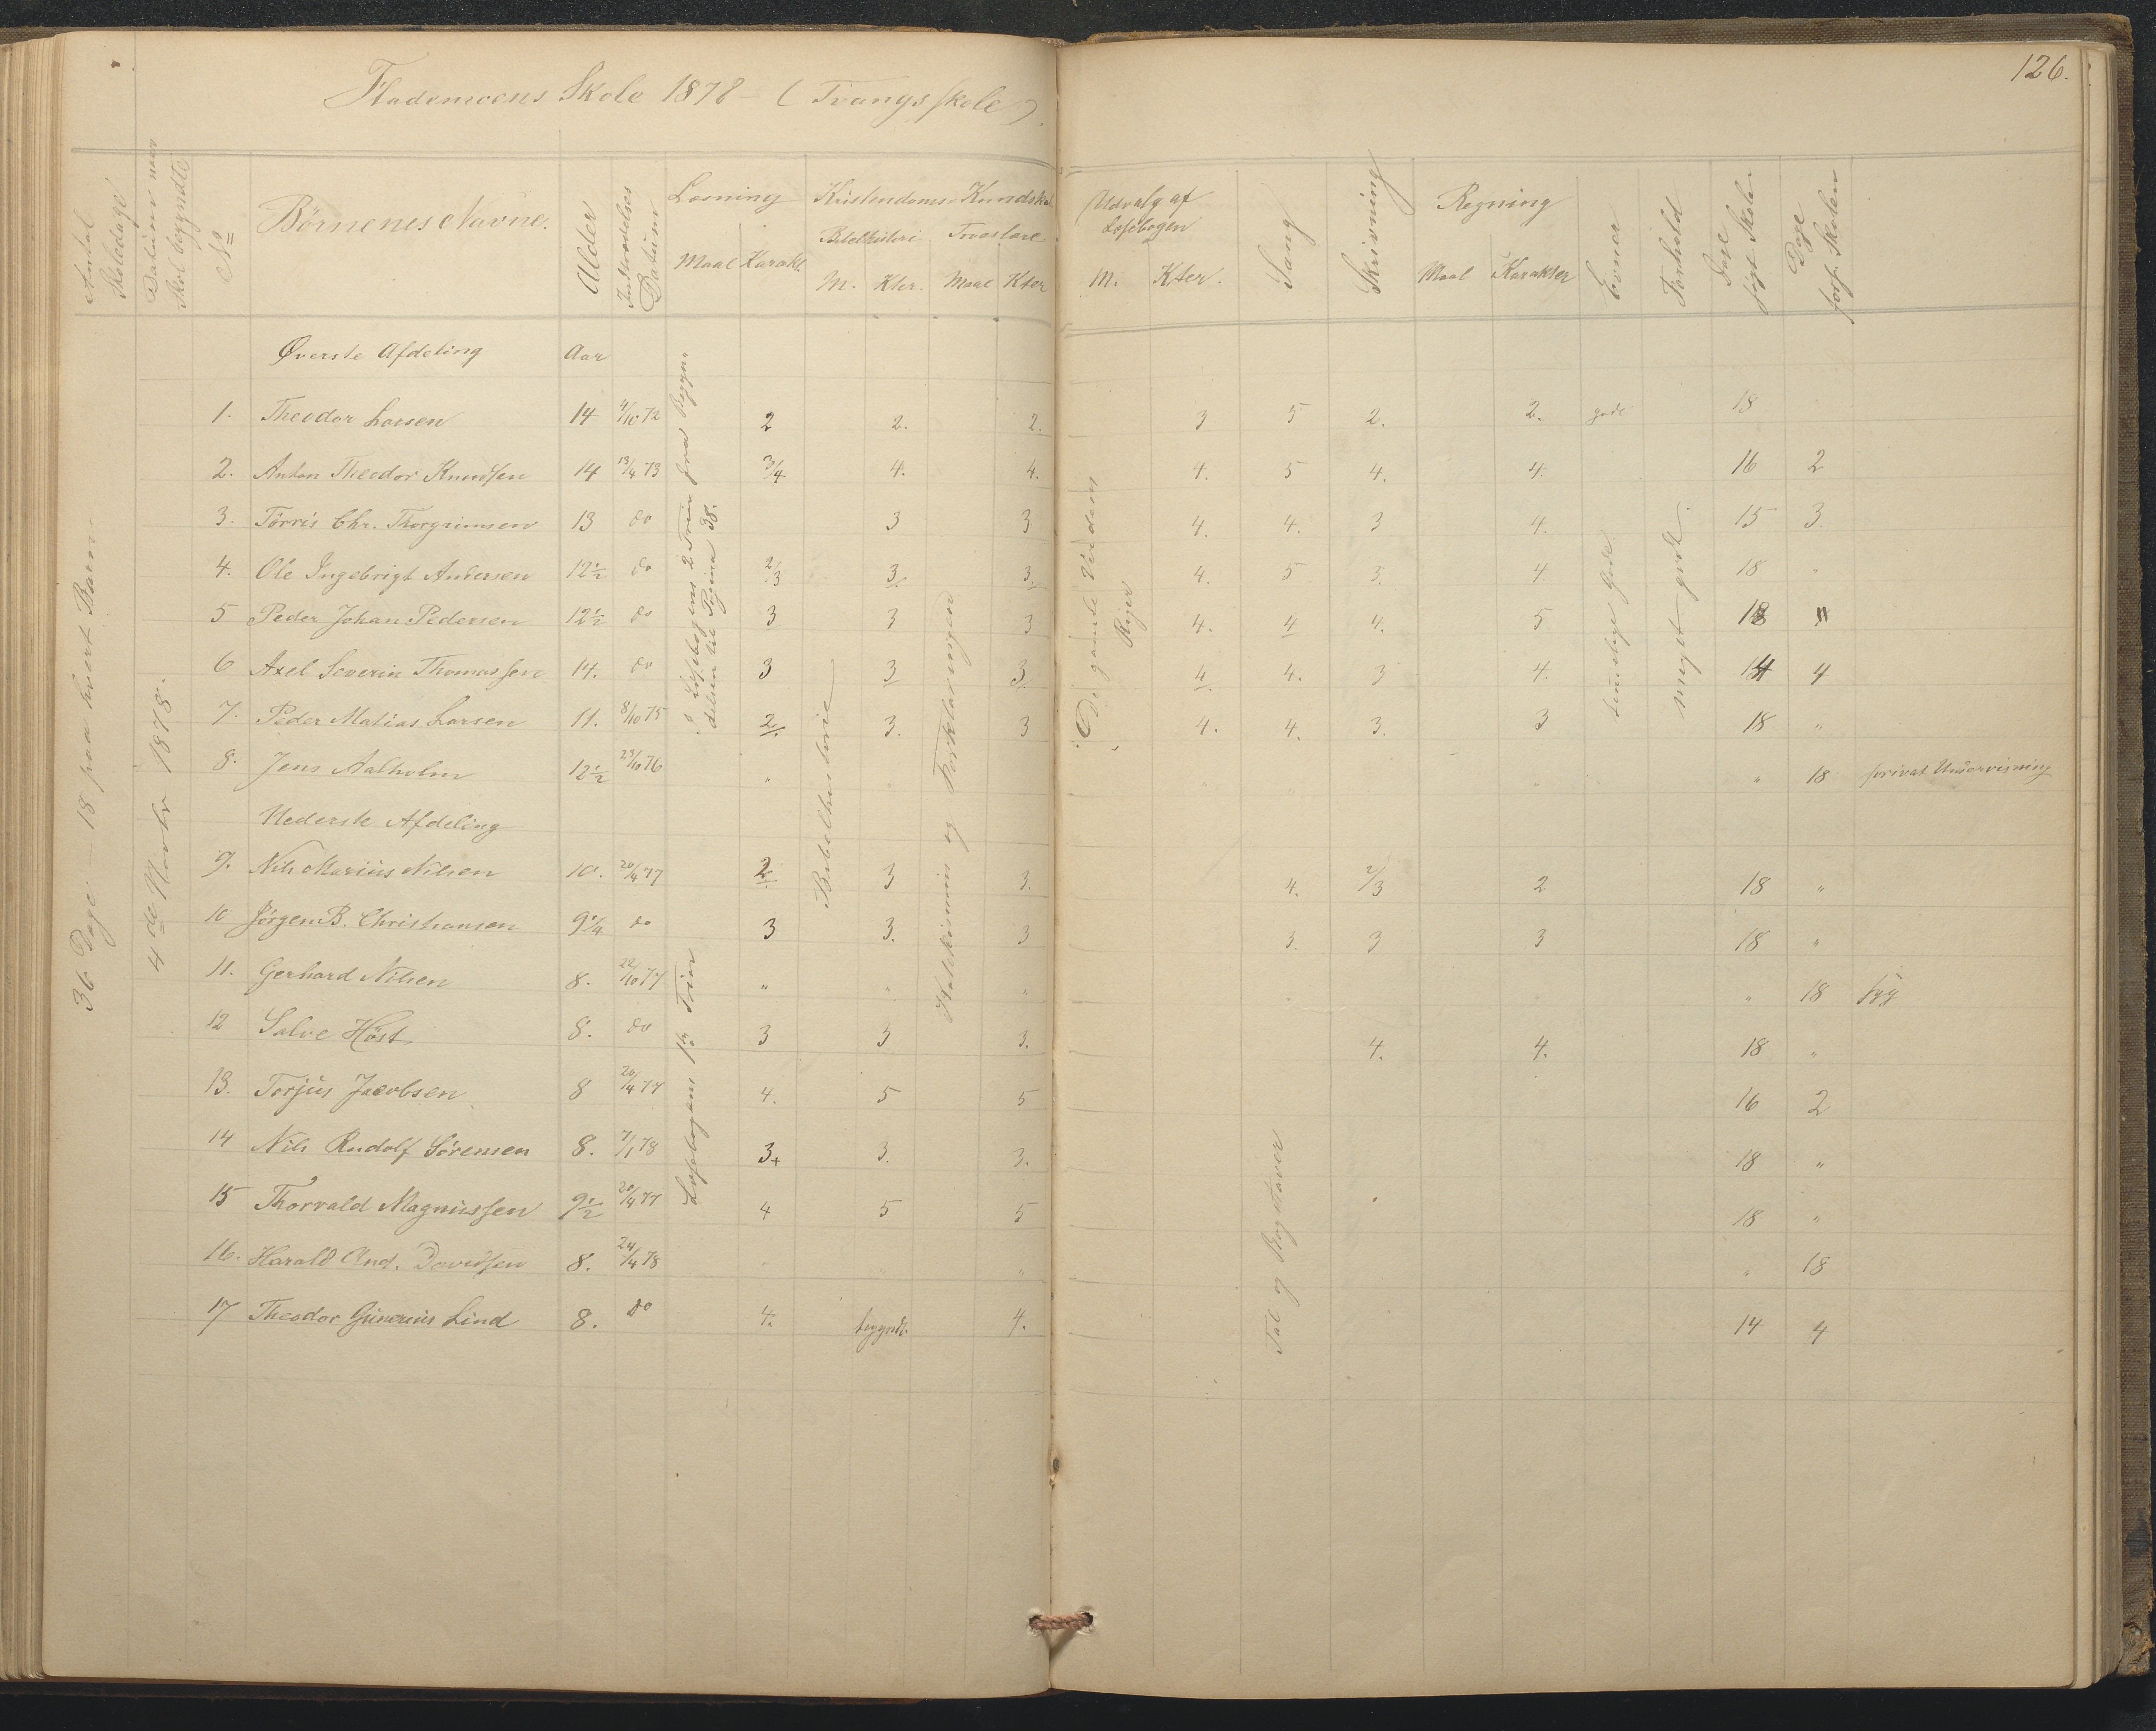 126.
Flademoens Skole 1878 – (Tvangsskole).
Antal Skoledage
Datum naar Skol. begyndte
No
Børnenes Navne.
Alder
Indtrædelses Datum
Læsning
Maal Karakt.
Kristendoms-Kundskab
Bibelhistori
M. Kter.
Troeslære
Maal Kter
Udvalg af Læsebogen
M. Kter.
Sang
Skrivning
Regning
Maal Karakter
Evner
Forhold
Dage søgt Skolen
Dage fors. Skolen
36 Dage – 18 paa hvert Barn
4de Novbr 1878.
Øverste Afdeling Aar
1. Theodor Larsen 14 4/10 72 2 2. 2. 3 5 2. 2. gode 18
2. Anton Theodor Knudsen 14 13/4 73 3/4 4. 4. 4. 5 4. 4. 16 2
3. Törris Chr. Thorgrimsen 13 do 3 3 4. 4. 3 4. 15 3.
4. Ole Ingebrigt Andersen 12½ do 2/3 3. 3. 4. 5 3. 4. 18 "
5 Peder Johan Pedersen 12½ do 3 3 3 4. 4 4. 5 18 "
6 Axel Severin Thomassen 14. do 3 3 3 4. 4. 3 4. 14 4
7. Peder Matias Larsen 11. 8/10 75 2. 3. 3 4. 4. 3. 3 18 "
8. Jens Aalholm 12½ 23/10 76 " " " " " " 18 privat Undervisning
Læsebogens 2 Trin fra Begyndelsen til Pagina 38.
Bibelhistorie
Katekismus og Forklaringen
De gamle Verdens Riger
temmelige gode
meget godt.
Nederste Afdeling
9. Nils Marius Nilsen 10. 20/4 77 2 3 3. 4. 2/3 2 18 "
10 Jörgen B. Christiansen 9¼ do 3 3. 3 3. 3 3 18 "
11. Gerhard Nilsen 8. 22/10 77 " " " " 18 syg
12 Salve Höst 8. do 3 3 3. 4. 4. 18 "
13. Torjus Jacobsen 8 20/4 77 4. 5 5 16 2
14 Nils Rudolf Sörensen 8. 7/1 78 3+ 3. 3. 18 "
15 Thorvald Magnussen 9½ 20/4 77 4 5 5 18 "
16. Harald And. Davidsen 8. 24/4 78 " " 18
17 Theodor Gunerius Lind 8. do 4. begyndt. 4. 14 4
Læsebogens 1ste Trin
Tal og Bogstaver